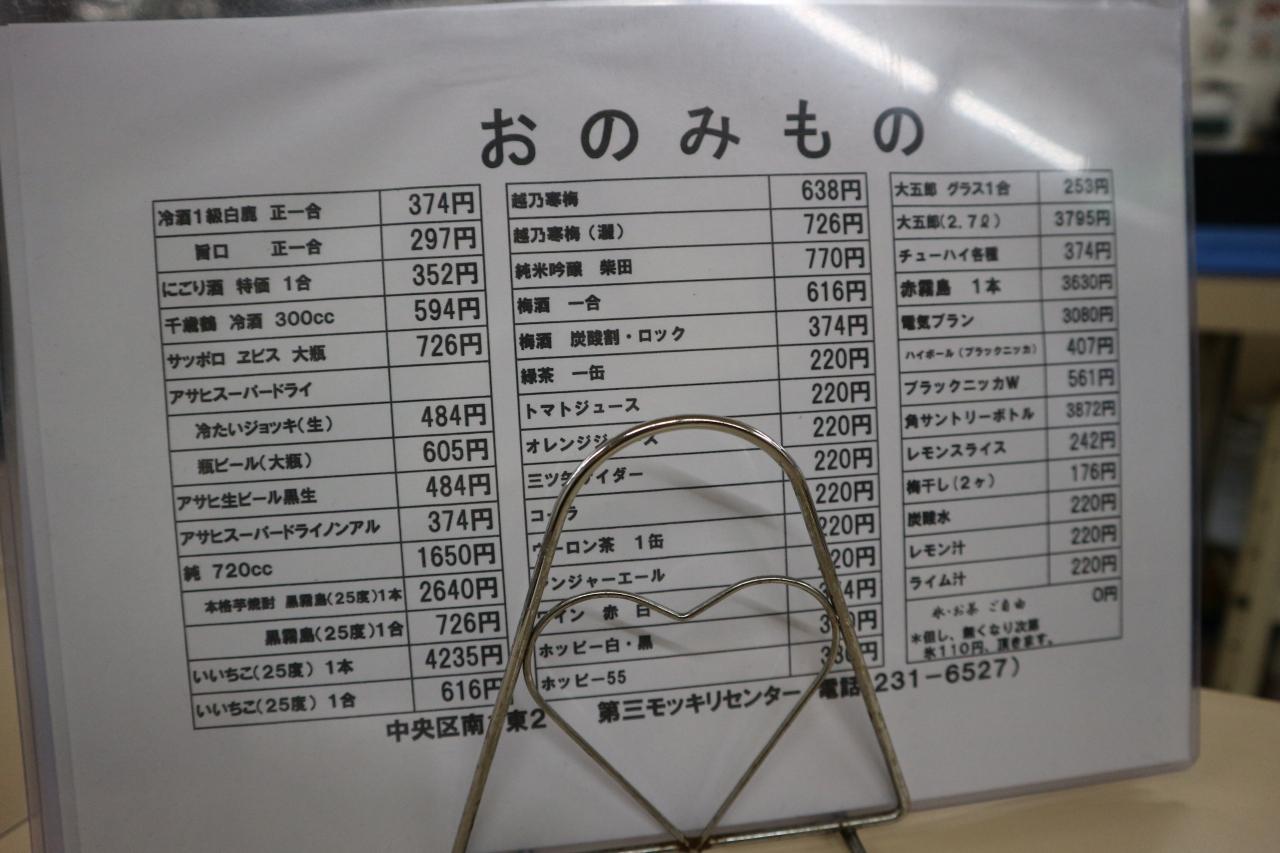 おのみもの
冷酒1級白鹿 正一合 374円
旨口 正一合 297円
にごり酒 特価 1合 352円
千歳鶴 冷酒 300cc 594円
サッポロ ヱビス 大瓶 726円
アサヒスーパードライ
冷たいジョッキ(生) 484円
瓶ビール(大瓶) 605円
アサヒ生ビール黒生 484円
アサヒスーパードライノンアル 374円
純 720cc 1650円
本格芋焼酎 黒霧島(25度)1本 2640円
黒霧島(25度)1合 726円
いいちこ(25度) 1本 4235円
いいちこ(25度) 1合 616円
越乃寒梅 638円
越乃寒梅(灑) 726円
純米吟醸 柴田 770円
梅酒 一合 616円
梅酒 炭酸割・ロック 374円
緑茶 一缶 220円
トマトジュース 220円
オレンジジュース 220円
三ツ矢サイダー 220円
コーラ 220円
ウーロン茶 1缶 220円
ジンジャーエール 220円
ワイン 赤 白
ホッピー白・黒
ホッピー55
大五郎 グラス1合 253円
大五郎(2.7ℓ) 3795円
チューハイ各種 374円
赤霧島 1本 3630円
電気ブラン 3080円
ハイボール(ブラックニッカ) 407円
ブラックニッカW 561円
角サントリーボトル 3872円
レモンスライス 242円
梅干し(2ヶ) 176円
炭酸水 220円
レモン汁 220円
ライム汁 220円
氷・お茶 ご自由 0円
*但し、無くなり次第
氷110円、頂きます。
中央区南1東2 第三モッキリセンター 電話 231-6527)